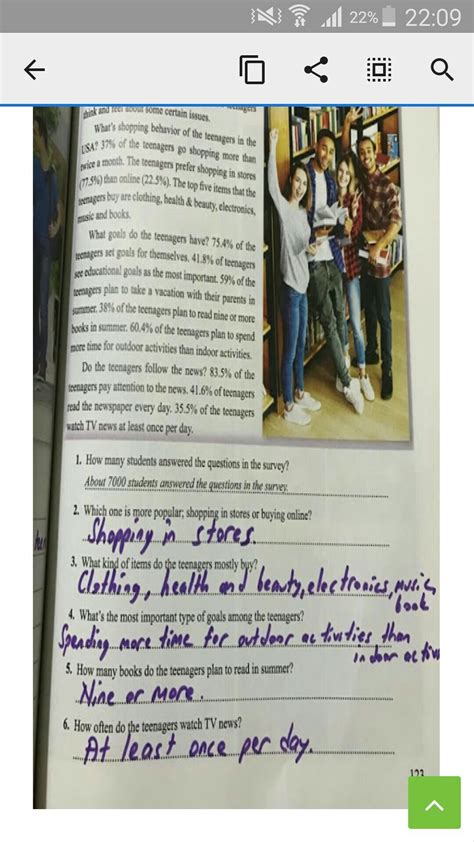 22% 22:09
think and feel about some certain issues.
What's shopping behavior of the teenagers in the
USA? 37% of the teenagers go shopping more than
twice a month. The teenagers prefer shopping in stores
(77.5%) than online (22.5%). The top five items that the
teenagers buy are clothing, health & beauty, electronics,
music and books.
What goals do the teenagers have? 75.4% of the
teenagers set goals for themselves. 41.8% of teenagers
see educational goals as the most important. 59% of the
teenagers plan to take a vacation with their parents in
summer. 38% of the teenagers plan to read nine or more
books in summer. 60.4% of the teenagers plan to spend
more time for outdoor activities than indoor activities.
Do the teenagers follow the news? 83.5% of the
teenagers pay attention to the news. 41.6% of teenagers
read the newspaper every day. 35.5% of the teenagers
watch TV news at least once per day.
1. How many students answered the questions in the survey?
About 7000 students answered the questions in the survey.
2. Which one is more popular; shopping in stores or buying online?
Shopping in stores.
3. What kind of items do the teenagers mostly buy?
Clothing, health and beauty, electronics, music
book
4. What's the most important type of goals among the teenagers?
Spending more time for outdoor activities than
indoor activ
5. How many books do the teenagers plan to read in summer?
Nine or more.
6. How often do the teenagers watch TV news?
At least once per day.
123